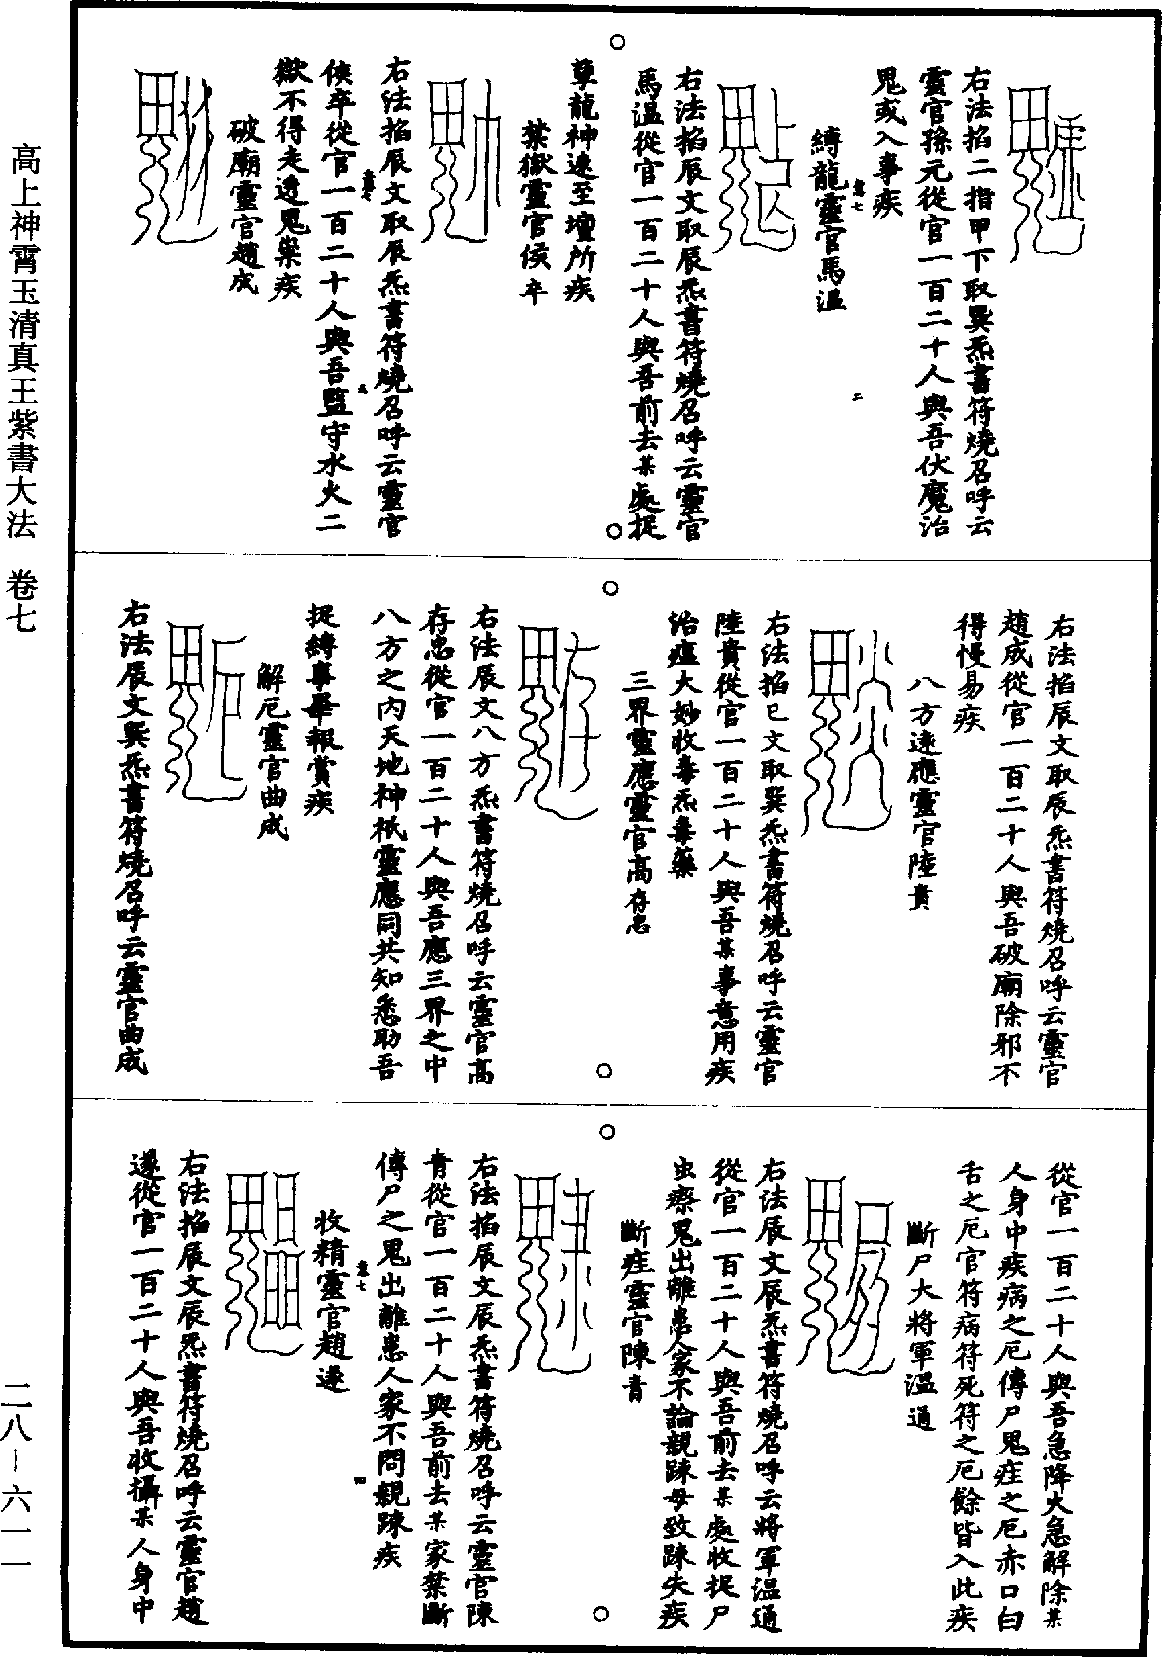 右法掐二指甲下取巽炁書符燒召呼云
靈官孫元從官一百二十人與吾伏魔治
鬼或入事疾
縛龍靈官馬溫
右法掐辰文取辰炁書符燒召呼云靈官
馬溫從官一百二十人與吾前去某處捉
孽龍神速至壇所疾
禁獄靈官侯卒
右法掐辰文取辰炁書符燒召呼云靈官
侯卒從官一百二十人與吾監守水火二
獄不得走透鬼祟疾
破廟靈官趙成
右法掐辰文取辰炁書符燒召呼云靈官
趙成從官一百二十人與吾破廟除邪不
得慢易疾
八方速應靈官陸貴
右法掐巳文取巽炁書符燒召呼云靈官
陸貴從官一百二十人與吾某事意用疾
治瘟大妙收毒炁毒藥
三界靈應靈官高存忠
右法辰文八方炁書符燒召呼云靈官高
存忠從官一百二十人與吾應三界之中
八方之內天地神祇靈應同共知悉助吾
捉縛事畢報賞疾
解厄靈官曲成
右法辰文巽炁書符燒召呼云靈官曲成
從官一百二十人與吾急降火急解除某
人身中疾病之厄傳尸鬼疰之厄赤口白
舌之厄官符病符死符之厄餘皆入此疾
斷尸大將軍溫通
右法辰文辰炁書符燒召呼云將軍溫通
從官一百二十人與吾前去某處收捉尸
虫瘵鬼出離患人家不論親踈毋致踈失疾
斷疰靈官陳青
右法掐辰文辰炁書符燒召呼云靈官陳
青從官一百二十人與吾前去某家禁斷
傳尸之鬼出離患人家不問親踈疾
收精靈官趙遂
右法掐辰文辰炁書符燒召呼云靈官趙
遂從官一百二十人與吾收攝某人身中
高上神霄玉清真王紫書大法　卷七
二八－六一一